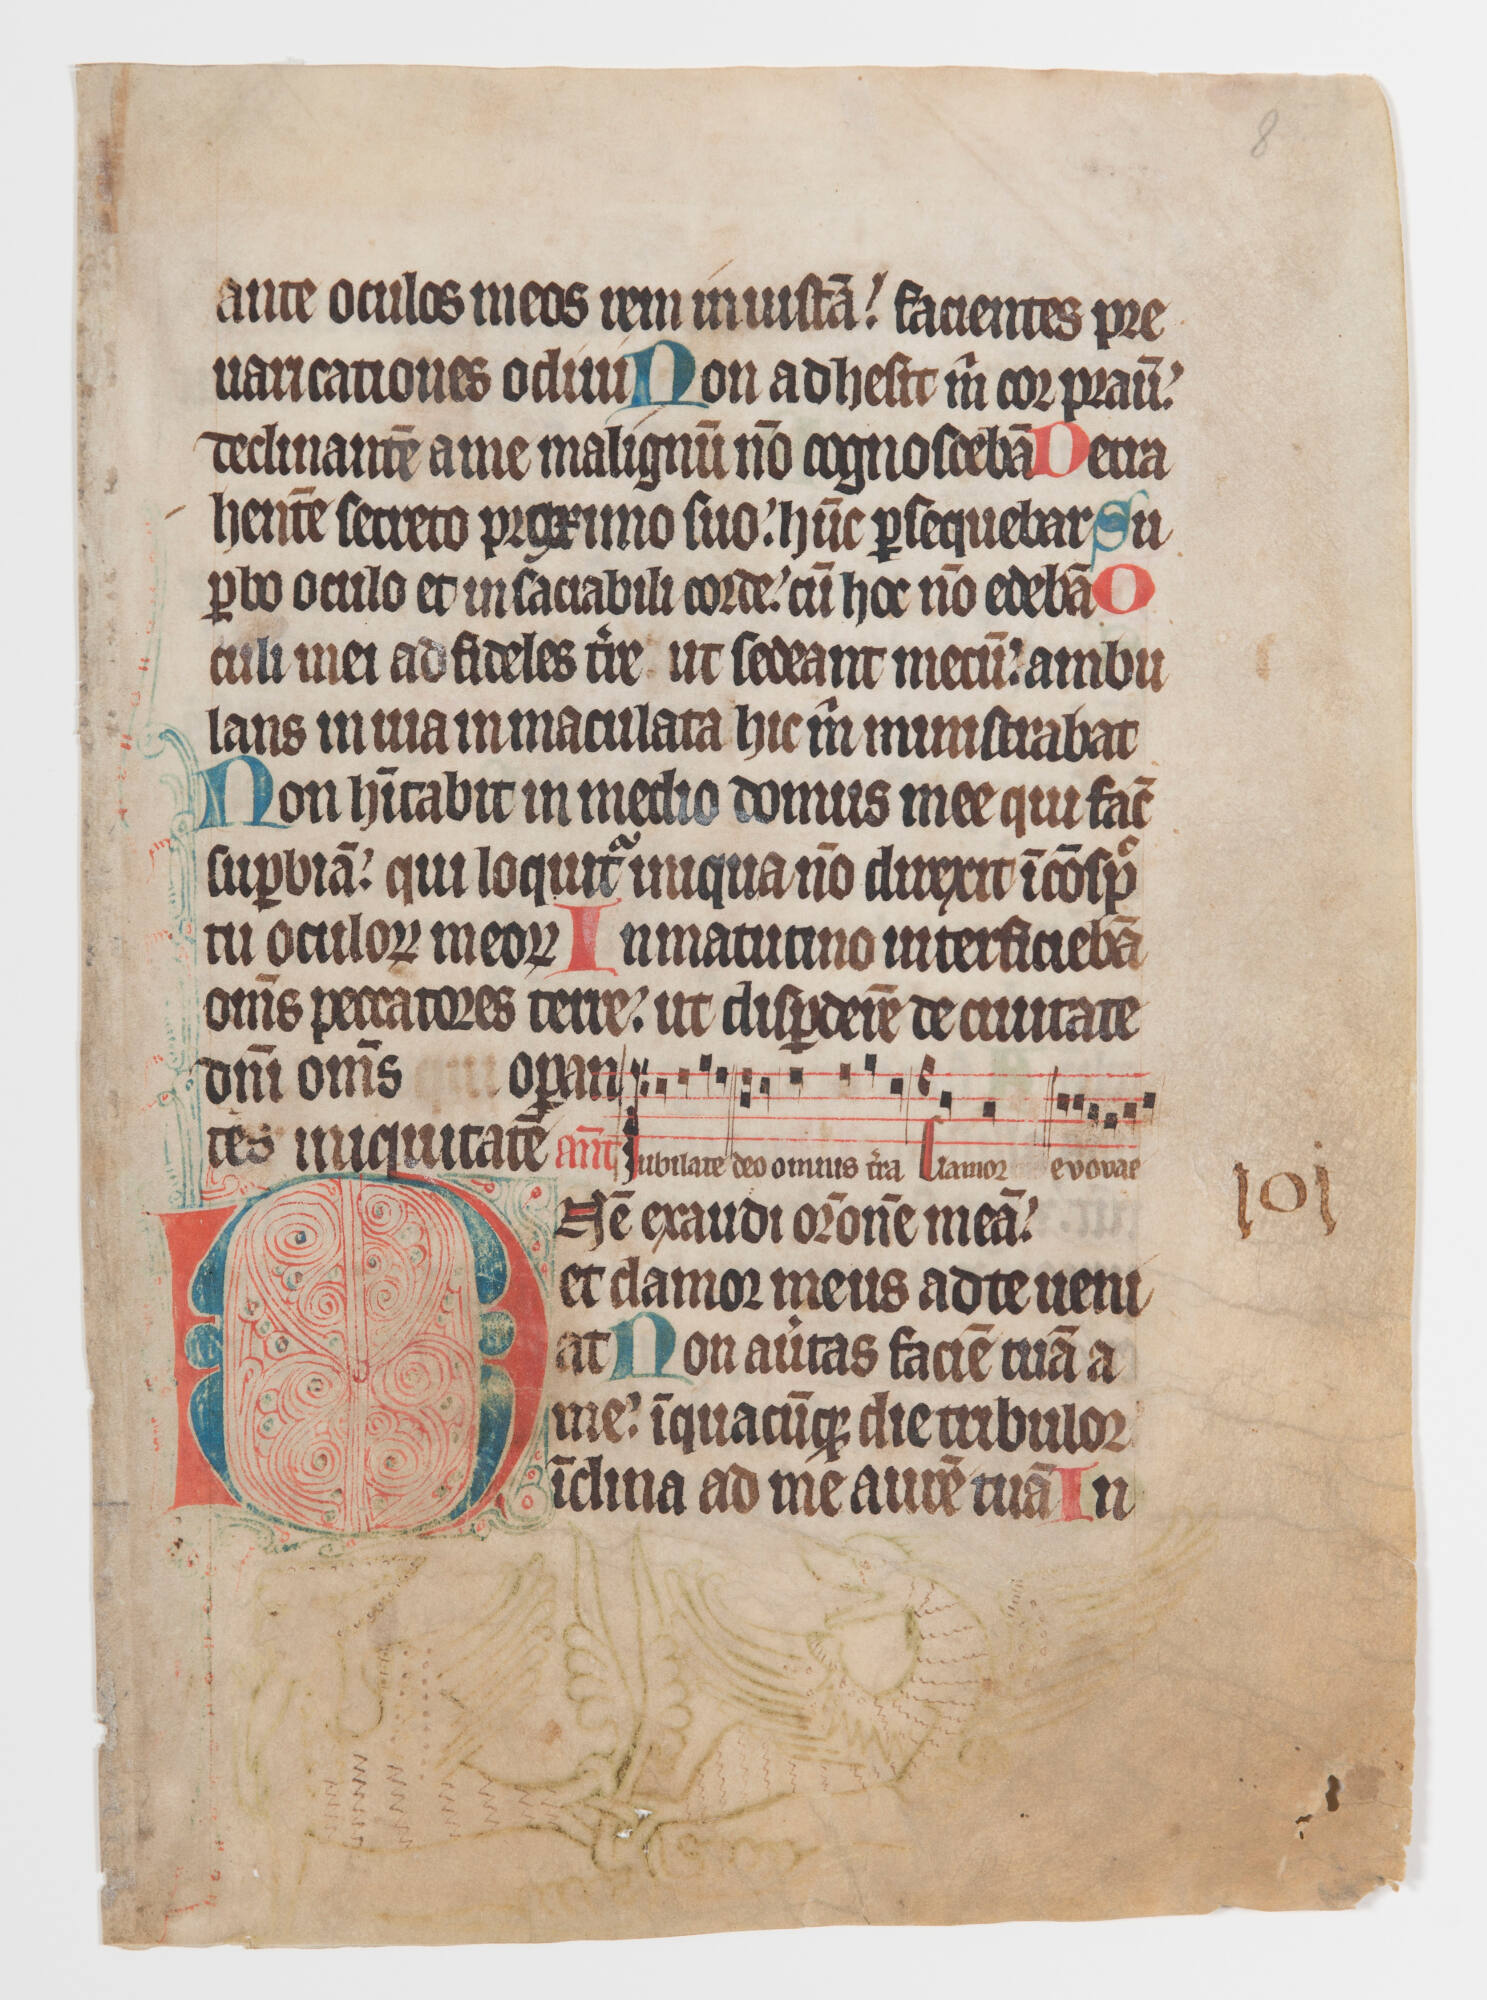 8
ante oculos meos rem iniustā: facientes pre
uaricationes odiui Non adhesit m̄ cor prauū:
declinantē a me malignū nō cognoscebā Detra
hentē secreto proximo suo: hūc ꝑsequebar Su
ꝑbo oculo et insaciabili corde: cū hoc nō edebā O
culi mei ad fideles t̄re ut sedeant mecū: ambu
lans in uia inmaculata hic m̄ ministrabat
Non hītabit in medio domus mee qui fac̄
suꝑbiā: qui loquit̄ iniqua nō direxit ī cōsp
tu oculoꝝ meoꝝ In matutino interficiebā
om̄s peccatores terre: ut disꝑderē de ciuitate
dn̄i om̄s oꝑan
tes iniquitatē ant̄ Iubilate deo omnis t̄ra Clamor evovae
Dn̄e exaudi or̄onē meā:
et clamor meus ad te ueni
at Non au̾tas faciē tuā a
me: ī quacūqꝫ die tribulor
īclina ad me aurē tuā In
101